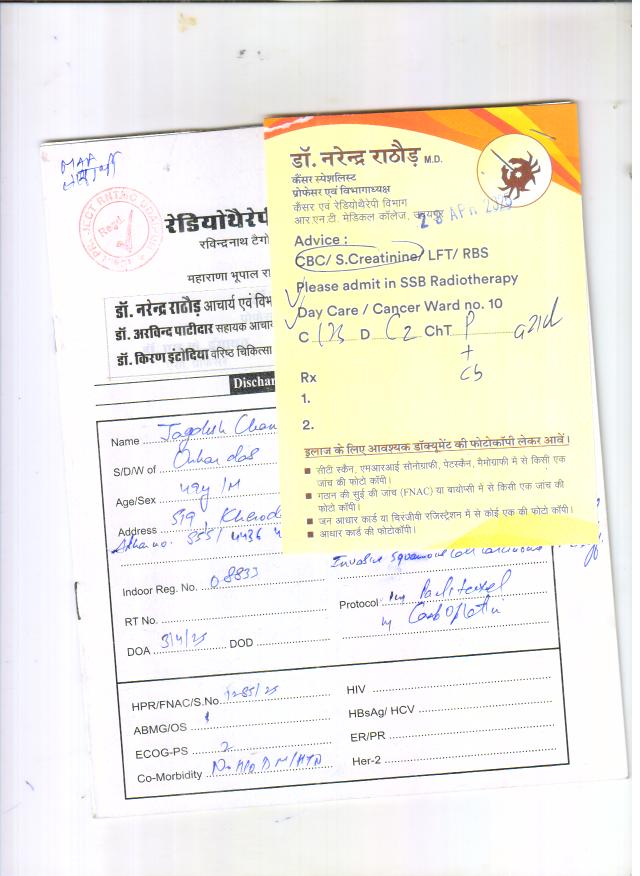 डॉ. नरेन्द्र राठौड़ M.D.
कैंसर स्पेशलिस्ट
प्रोफेसर एवं विभागाध्यक्ष
कैंसर एवं रेडियोथैरेपी विभाग
आर.एन.टी. मेडिकल कॉलेज, उदयपुर
Advice :
CBC/ S.Creatinine/ LFT/ RBS
Please admit in SSB Radiotherapy
Day Care / Cancer Ward no. 10
C D C2 ChT P
+
Rx
1.
2.
इलाज के लिए आवश्यक डॉक्यूमेंट की फोटोकॉपी लेकर आवें।
सीटी स्कैन, एमआरआई सोनोग्राफी, पेटस्कैन, मैमोग्राफी में से किसी एक
जांच की फोटो कॉपी।
गठान की सुई की जांच (FNAC) या बायोप्सी में से किसी एक जांच की
फोटो कॉपी।
जन आधार कार्ड या चिरंजीवी रजिस्ट्रेशन में से कोई एक की फोटो कॉपी।
आधार कार्ड की फोटोकॉपी।
रेडियोथैरेपी
रविन्द्रनाथ टैगो
महाराणा भूपाल रा
डॉ. नरेन्द्र राठौड़ आचार्य एवं विभ
डॉ. अरविन्द पाटीदार सहायक आचार
डॉ. किरण इंटोदिया वरिष्ठ चिकित्सा
Dischar
Name Jagdish Chan
S/D/W of Onkar das
Age/Sex 49y/M
Address
Indoor Reg. No. 08833
Invasive Squamous Cell Carcinoma
RT No.
Protocol Inj Paclitaxel
Inj Carboplatin
DOA 3/4/25 DOD
HPR/FNAC/S.No. 1285/25
HIV
ABMG/OS
HBsAg/ HCV
ECOG-PS 2
ER/PR
Co-Morbidity No H/O DM/HTN
Her-2